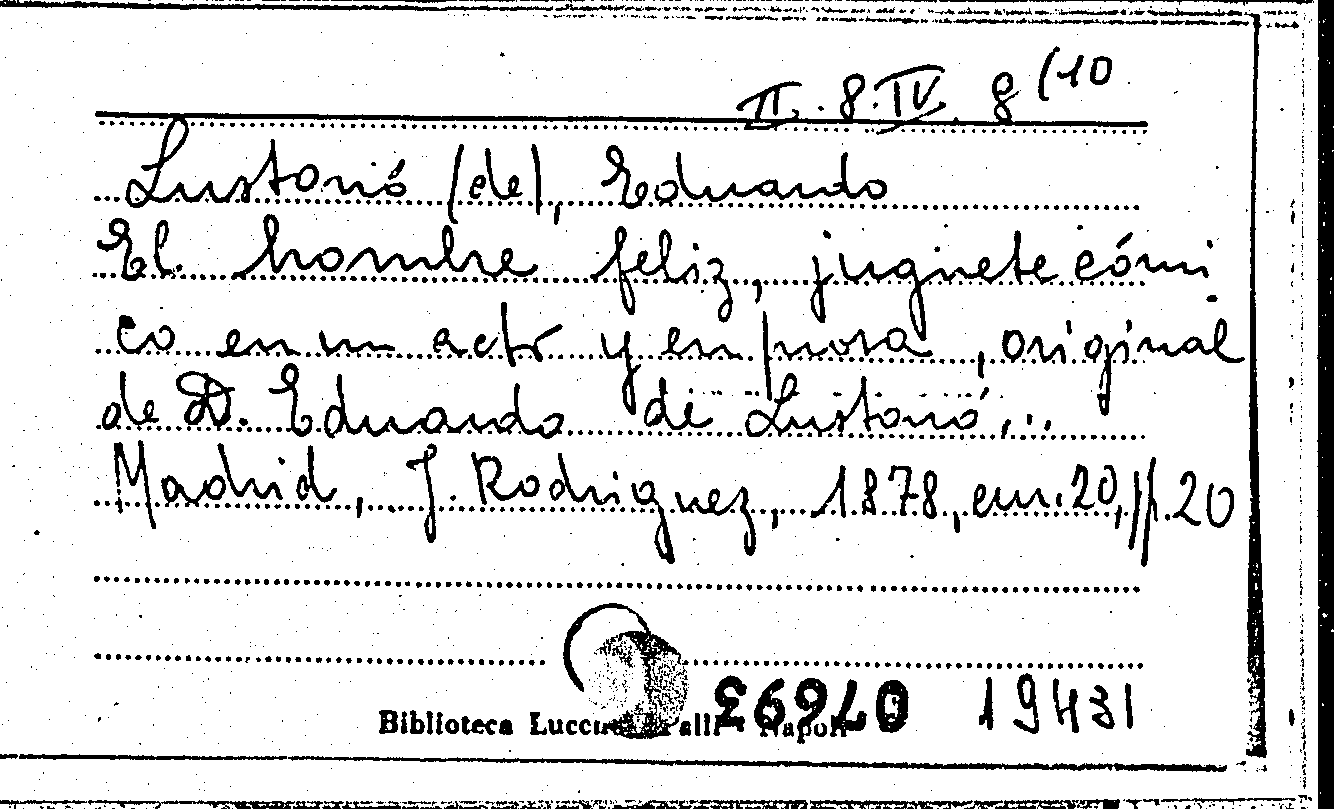 II. 8. IV. 8 (10
Lustonó (de), Eduardo
El hombre feliz, juguete cómi
co en un acto y en prosa, original
de D. Eduardo de Lustonó...
Madrid, J. Rodriguez, 1878, cm. 20, pp. 20
Biblioteca Lucchesi Palli - Napoli
076933 19431